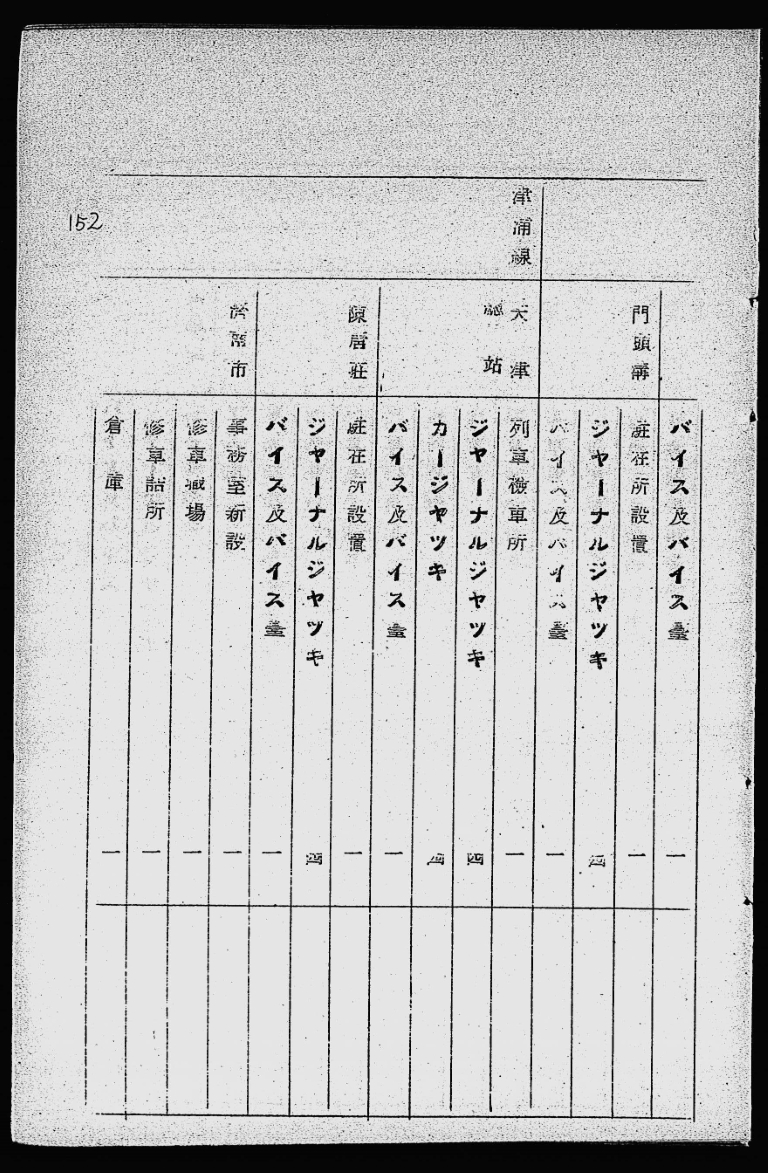 152
バイス及バイス臺
一
門頭溝
駐在所設置
一
ジヤーナルジヤツキ
四
バイス及バイス臺
一
津浦線
天津
總站
列車檢車所
一
ジヤーナルジヤツキ
四
カージヤツキ
四
バイス及バイス臺
一
陳唐莊
駐在所設置
一
ジヤーナルジヤツキ
四
バイス及バイス臺
一
市
事務室新設
一
修車職場
一
修車詰所
一
倉庫
一